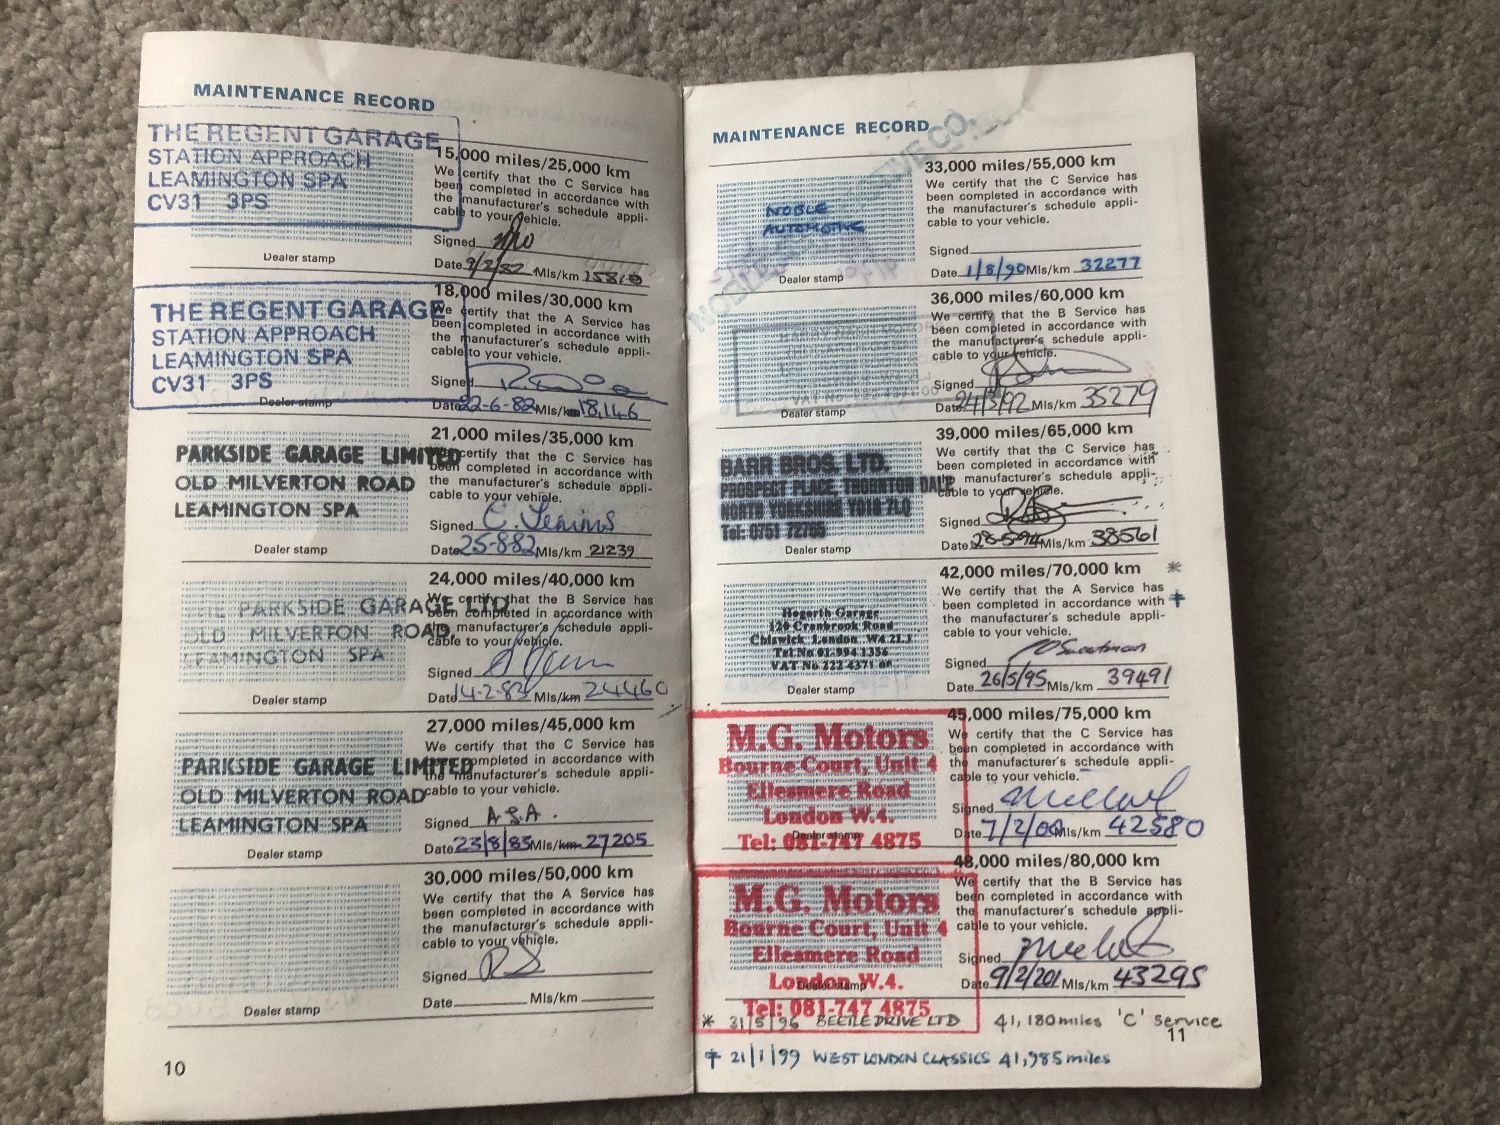 MAINTENANCE RECORD
THE REGENT GARAGE
STATION APPROACH
LEAMINGTON SPA
CV31 3PS
Dealer stamp
15,000 miles/25,000 km
We certify that the C Service has
been completed in accordance with
the manufacturer's schedule appli-
cable to your vehicle.
Signed
Date 9/2/82 Mls/km 15810
THE REGENT GARAGE
STATION APPROACH
LEAMINGTON SPA
CV31 3PS
Dealer stamp
18,000 miles/30,000 km
We certify that the A Service has
been completed in accordance with
the manufacturer's schedule appli-
cable to your vehicle.
Signed
Date 22-6-82 Mls/km 18,146
PARKSIDE GARAGE LIMITED
OLD MILVERTON ROAD
LEAMINGTON SPA
Dealer stamp
21,000 miles/35,000 km
We certify that the C Service has
been completed in accordance with
the manufacturer's schedule appli-
cable to your vehicle.
Signed
Date 25-882 Mls/km 21239
THE PARKSIDE GARAGE LTD
OLD MILVERTON ROAD
LEAMINGTON SPA
Dealer stamp
24,000 miles/40,000 km
We certify that the B Service has
been completed in accordance with
the manufacturer's schedule appli-
cable to your vehicle.
Signed
Date 14-2-83 Mls/km 24460
PARKSIDE GARAGE LIMITED
OLD MILVERTON ROAD
LEAMINGTON SPA
Dealer stamp
27,000 miles/45,000 km
We certify that the C Service has
been completed in accordance with
the manufacturer's schedule appli-
cable to your vehicle.
Signed A.S.A.
Date 23/8/83 Mls/km 27205
Dealer stamp
30,000 miles/50,000 km
We certify that the A Service has
been completed in accordance with
the manufacturer's schedule appli-
cable to your vehicle.
Signed
Date Mls/km
10
MAINTENANCE RECORD
NOBLE
AUTOMOTIVE
Dealer stamp
33,000 miles/55,000 km
We certify that the C Service has
been completed in accordance with
the manufacturer's schedule appli-
cable to your vehicle.
Signed
Date 1/8/90 Mls/km 32277
Dealer stamp
36,000 miles/60,000 km
We certify that the B Service has
been completed in accordance with
the manufacturer's schedule appli-
cable to your vehicle.
Signed
Date 24/3/92 Mls/km 35279
BARR BROS. LTD.
PROSPECT PLACE, THORNTON DALE
NORTH YORKSHIRE YO18 7LQ
Tel: 0751 72765
Dealer stamp
39,000 miles/65,000 km
We certify that the C Service has
been completed in accordance with
the manufacturer's schedule appli-
cable to your vehicle.
Signed
Date 28-5-94 Mls/km 38561
Hogarth Garage
129 Cranbrook Road
Chiswick London W4 2LJ
Tel.No 01-994 1356
VAT No 222 4371
Dealer stamp
42,000 miles/70,000 km *
We certify that the A Service has
been completed in accordance with †
the manufacturer's schedule appli-
cable to your vehicle.
Signed
Date 26/5/95 Mls/km 39491
M.G. Motors
Bourne Court, Unit 4
Ellesmere Road
London W.4.
Tel: 081-747 4875
Dealer stamp
45,000 miles/75,000 km
We certify that the C Service has
been completed in accordance with
the manufacturer's schedule appli-
cable to your vehicle.
Signed
Date 7/2/00 Mls/km 42580
M.G. Motors
Bourne Court, Unit 4
Ellesmere Road
London W.4.
Tel: 081-747 4875
Dealer stamp
48,000 miles/80,000 km
We certify that the B Service has
been completed in accordance with
the manufacturer's schedule appli-
cable to your vehicle.
Signed
Date 9/2/201 Mls/km 43295
* 31/5/96 BEETLEDRIVE LTD 41,180 miles 'C' service
11
† 21/1/99 WEST LONDON CLASSICS 41,985 miles